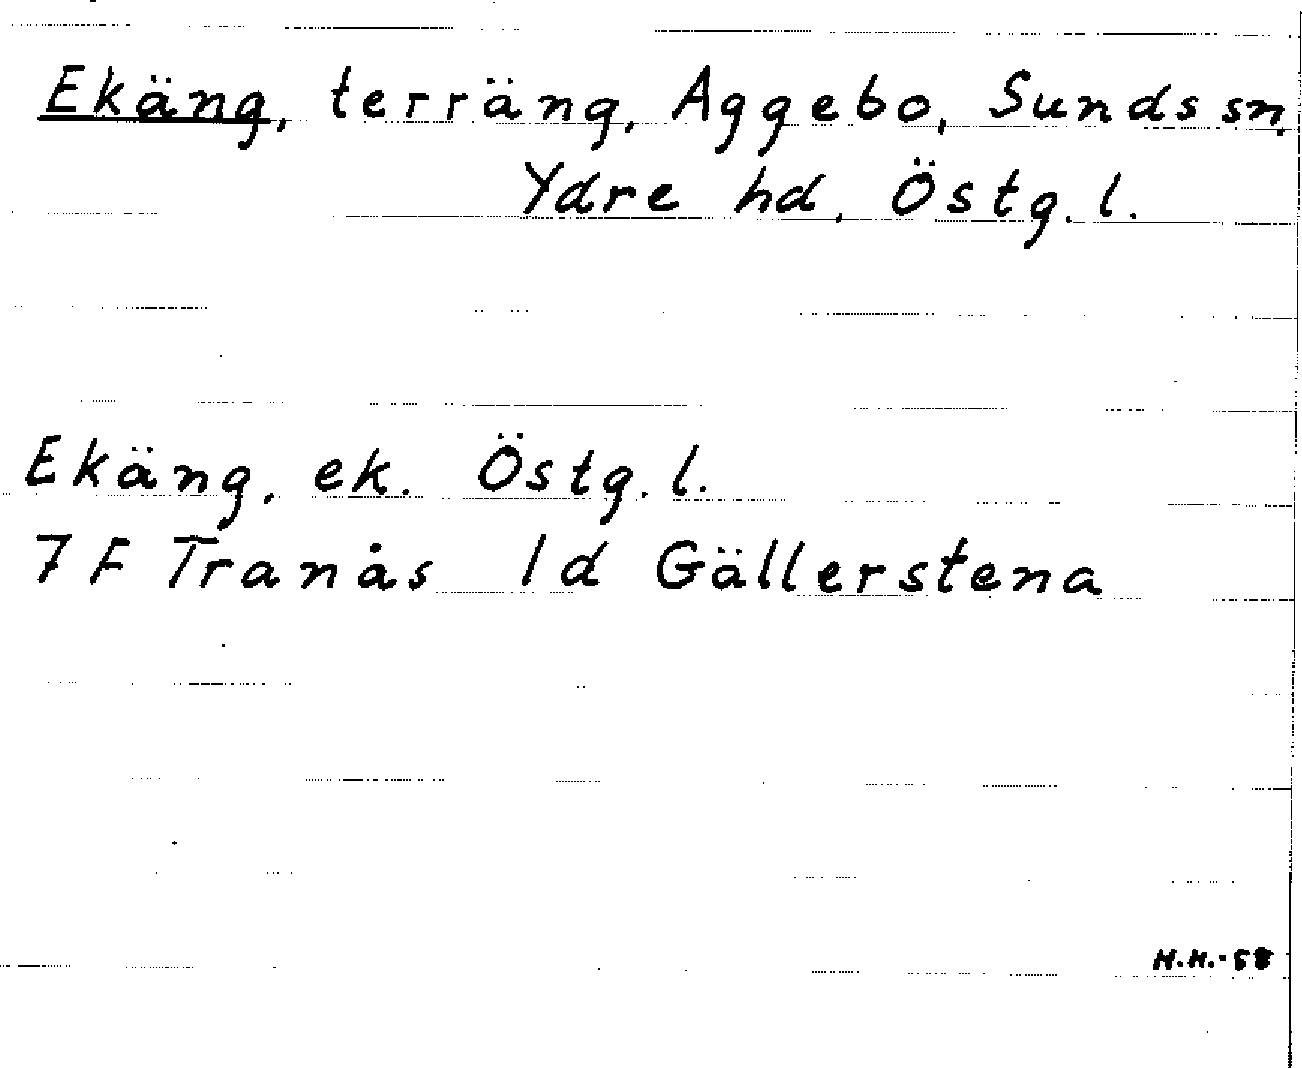 Ekäng, terräng, Aggebo, Sunds sn.
Ydre hd, Östg. l.
Ekäng, ek. Östg. l.
7 F Tranås 1d Gällerstena
H.H.-58